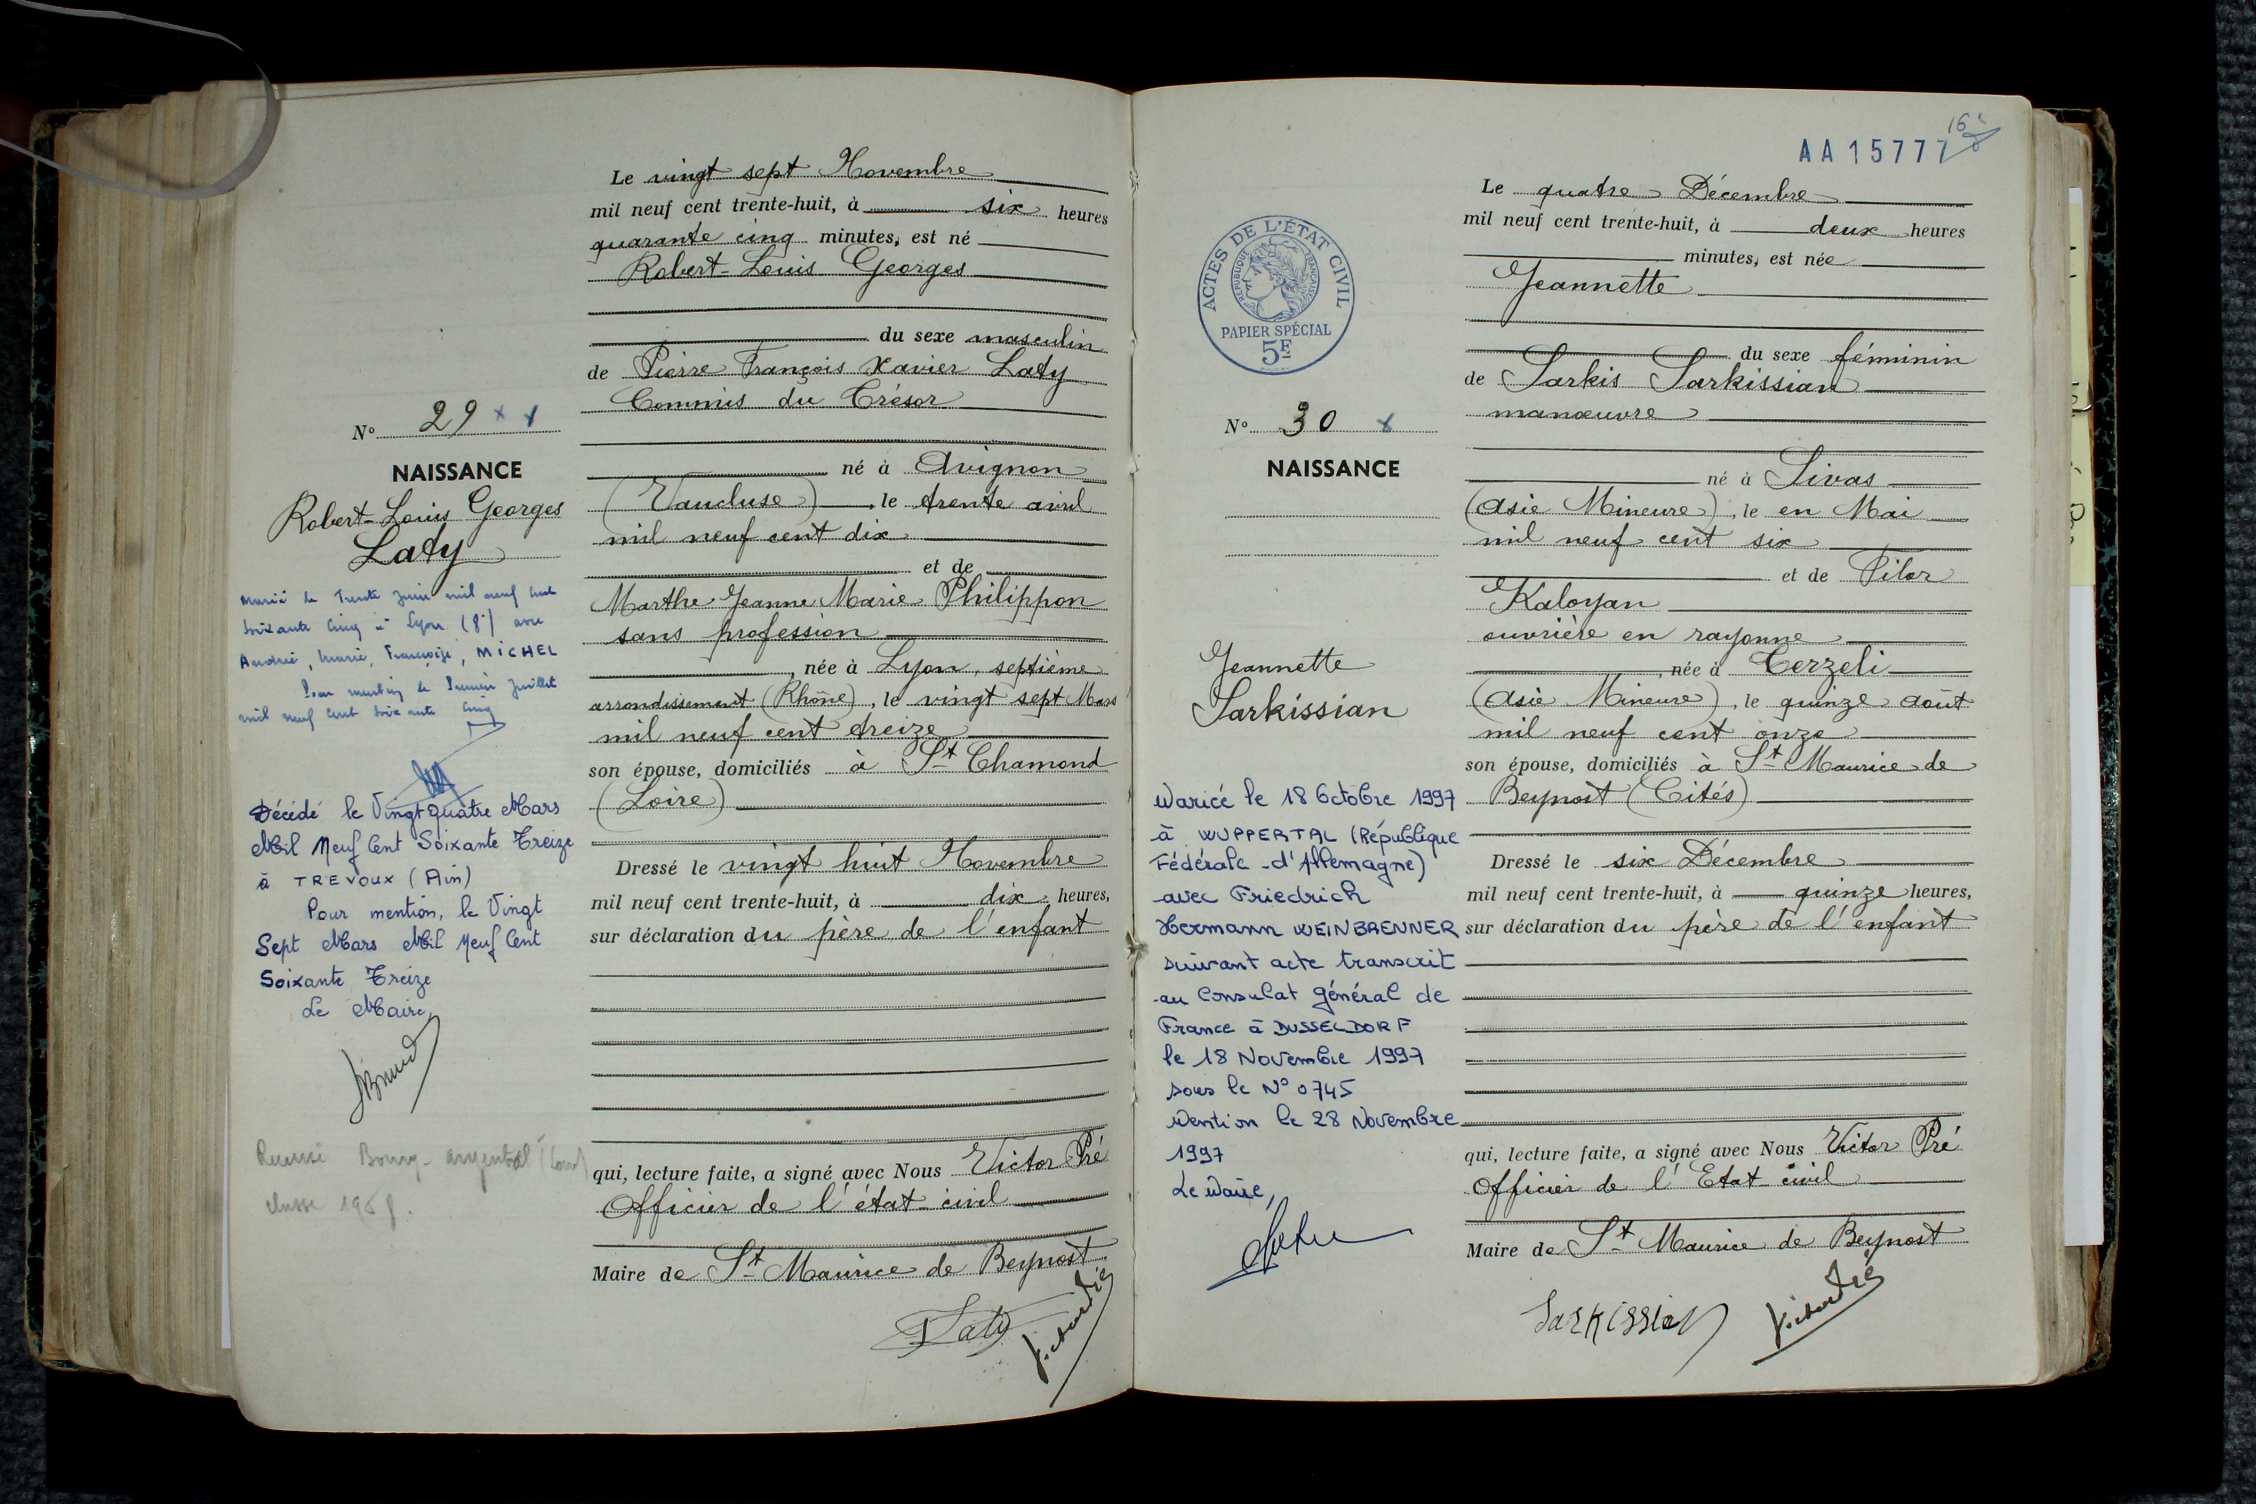 Le vingt sept Novembre
mil neuf cent trente-huit, à six heures
quarante cinq minutes, est né
Robert-Louis Georges
du sexe masculin
de Pierre François Xavier Laty
Commis du Trésor
né à Avignon
(Vaucluse), le trente avril
mil neuf cent dix
et de
Marthe Jeanne Marie Philippon
sans profession
, née à Lyon, septième
arrondissement (Rhône), le vingt sept Mars
mil neuf cent treize
son épouse, domiciliés à St Chamond
(Loire)
Dressé le vingt huit Novembre
mil neuf cent trente-huit, à dix heures,
sur déclaration du père de l'enfant
qui, lecture faite, a signé avec Nous Victor Pré
Officier de l'état-civil
Maire de St Maurice de Beynost
Laty
Victor Pré
No 29
NAISSANCE
Robert-Louis Georges
Laty
Marié le Trente Juin mil neuf cent
soixante cinq à Lyon (8e) avec
Andrée, Marie, Françoise, MICHEL
Pour mention le Premier Juillet
mil neuf cent soixante cinq
Décédé le Vingt quatre Mars
Mil Neuf Cent Soixante Treize
à TREVOUX (Ain)
Pour mention, le Vingt
Sept Mars Mil Neuf Cent
Soixante Treize
Le Maire
Bourg-Argental
classe 1958.
AA15777
16
ACTES DE L'ÉTAT CIVIL
RÉPUBLIQUE FRANÇAISE
PAPIER SPÉCIAL
5F
No 30
NAISSANCE
Jeannette
Sarkissian
Marié le 18 Octobre 1997
à WUPPERTAL (République
Fédérale d'Allemagne)
avec Friedrich
Hermann WEINBRENNER
suivant acte transcrit
au Consulat Général de
France à DUSSELDORF
le 18 Novembre 1997
sous le No 0745
Mention le 28 Novembre
1997
Le Maire,
Le quatre Décembre
mil neuf cent trente-huit, à deux heures
minutes, est née
Jeannette
du sexe féminin
de Sarkis Sarkissian
manœuvre
né à Sivas
(Asie Mineure), le en Mai
mil neuf cent six
et de Pilor
Kaloyan
ouvrière en rayonne
, née à Cerzeli
(Asie Mineure), le quinze août
mil neuf cent onze
son épouse, domiciliés à St Maurice de
Beynost (Cités)
Dressé le six Décembre
mil neuf cent trente-huit, à quinze heures,
sur déclaration du père de l'enfant
qui, lecture faite, a signé avec Nous Victor Pré
Officier de l'Etat civil
Maire de St Maurice de Beynost
Sarkissian
Victor Pré